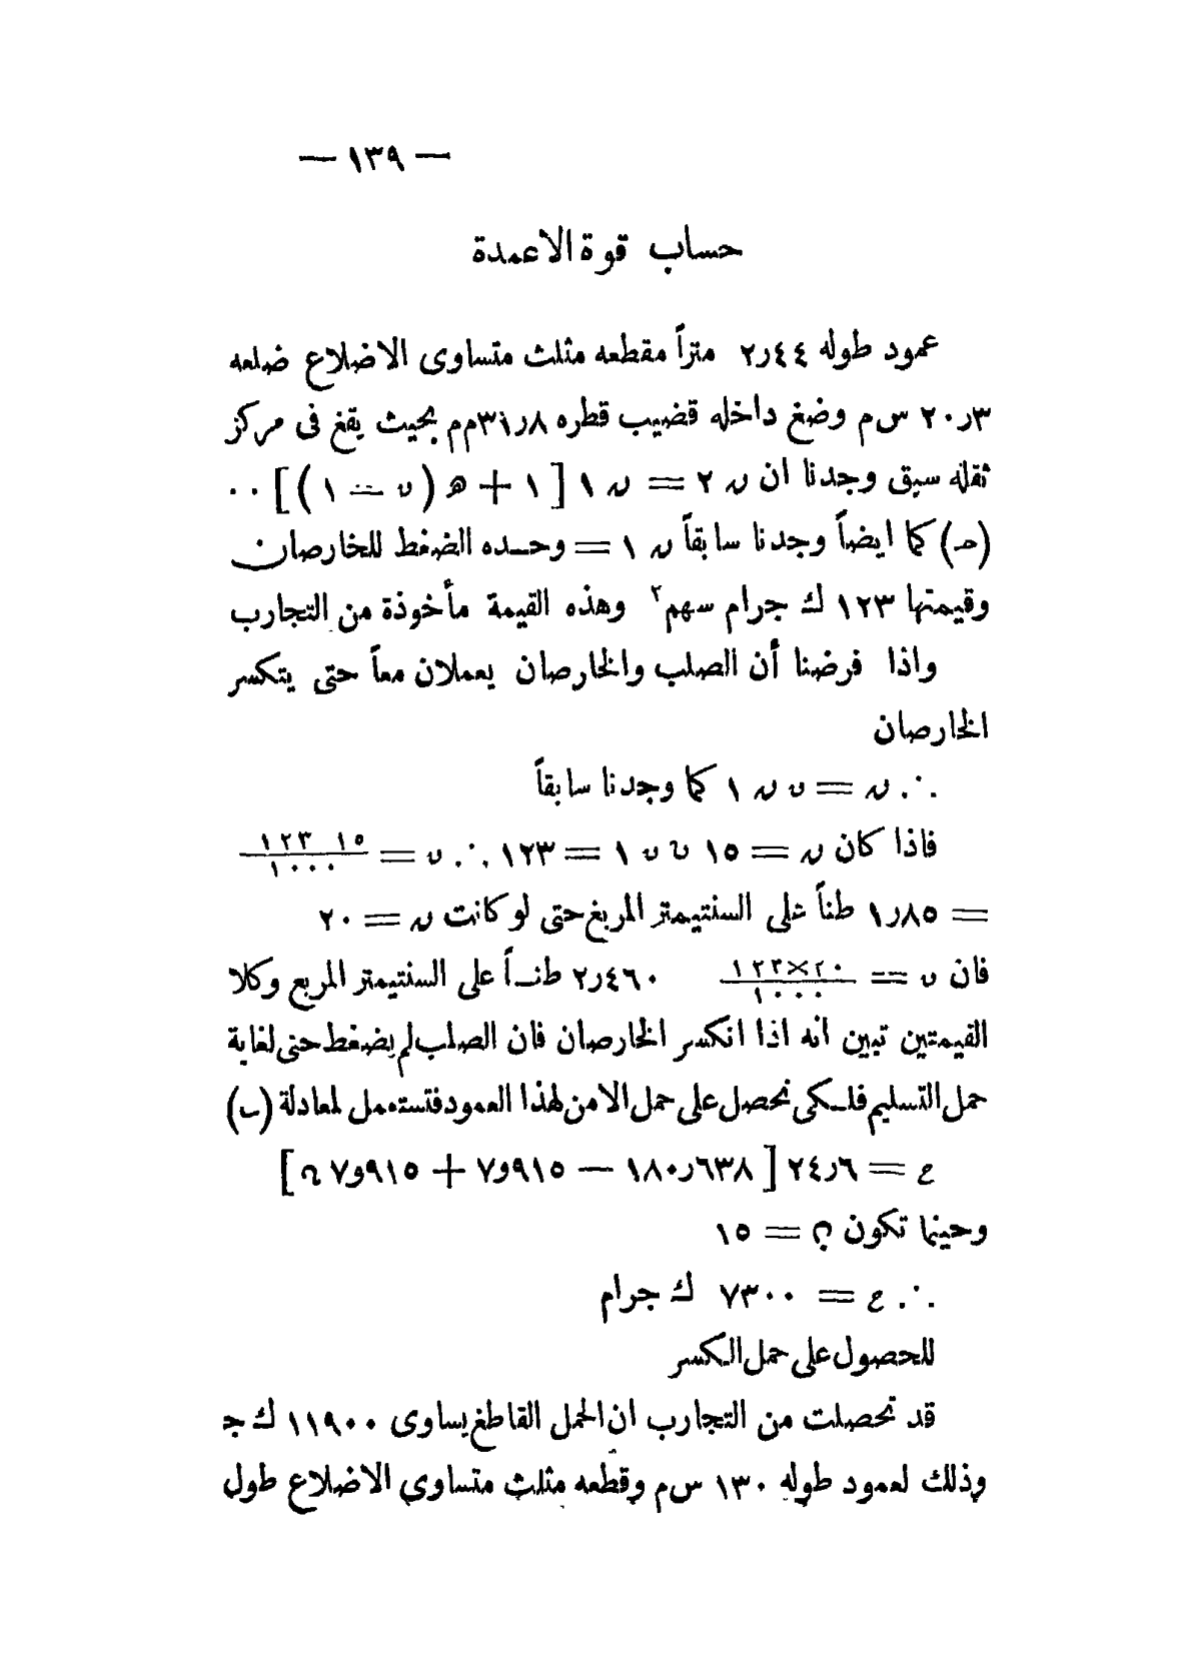 — ١٣٩ —
حساب قوة الاعمدة
عمود طوله ٢ر٤٤ متراً مقطعه مثلث متساوى الاضلاع ضلعه
٢٠ر٣ س م وضغ داخله قضيب قطره ٣١ر٨ م م بحيث يقغ فى مركز
ثقله سيق وجدنا ان ں ٢ = ں ١ [ ١ + ه ( ں — ١ ) ] ٠٠
(حـ) كما ايضاً وجدنا سابقاً ں ١ = وحـده الضغط للخارصان
وقيمتها ١٢٣ ك جرام سهم٢ وهذه القيمة مأخوذة من التجارب
واذا فرضنا أن الصلب والخارصان يعملان معاً حتى يتكسر
الخارصان
∴ ں = ں ں ١ كما وجدنا سابقاً
فاذا كان ں = ١٥ ں ں ١ = ١٢٣ ∴ ں = ١٥ ١٢٣ / ١٠٠٠
= ١ر٨٥ طناً على السنتيمتر المربغ حتى لو كانت ں = ٢٠
فان ں = ٢٠×١٢٣ / ١٠٠٠ ٢ر٤٦٠ طنـاً على السنتيمتر المربع وكلا
القيمتين تبين انه اذا انكسر الخارصان فان الصلب لم يضغط حتى لغاية
حمل التسليم فلـكى نحصل على حمل الامن لهذا العمود فتستعمل لمعادلة (ب)
ع = ٢٤ر٦ [ ١٨٠ر٦٣٨ — ٧و٩١٥ + ٧و٩١٥ ں ]
وحينما تكون ں = ١٥
∴ ع = ٧٣٠٠ ك جرام
للحصول على حمل الكسر
قد تحصلت من التجارب ان الحمل القاطغ يساوى ١١٩٠٠ ك جـ
وذلك لعمود طوله ١٣٠ س م وقطعه مثلث متساوى الاضلاع طول